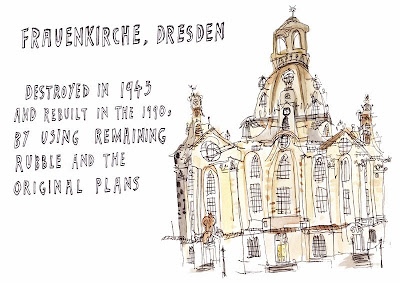 FRAUENKIRCHE, DRESDEN
DESTROYED IN 1945
AND REBUILT IN THE 1990s
BY USING REMAINING
RUBBLE AND THE
ORIGINAL PLANS